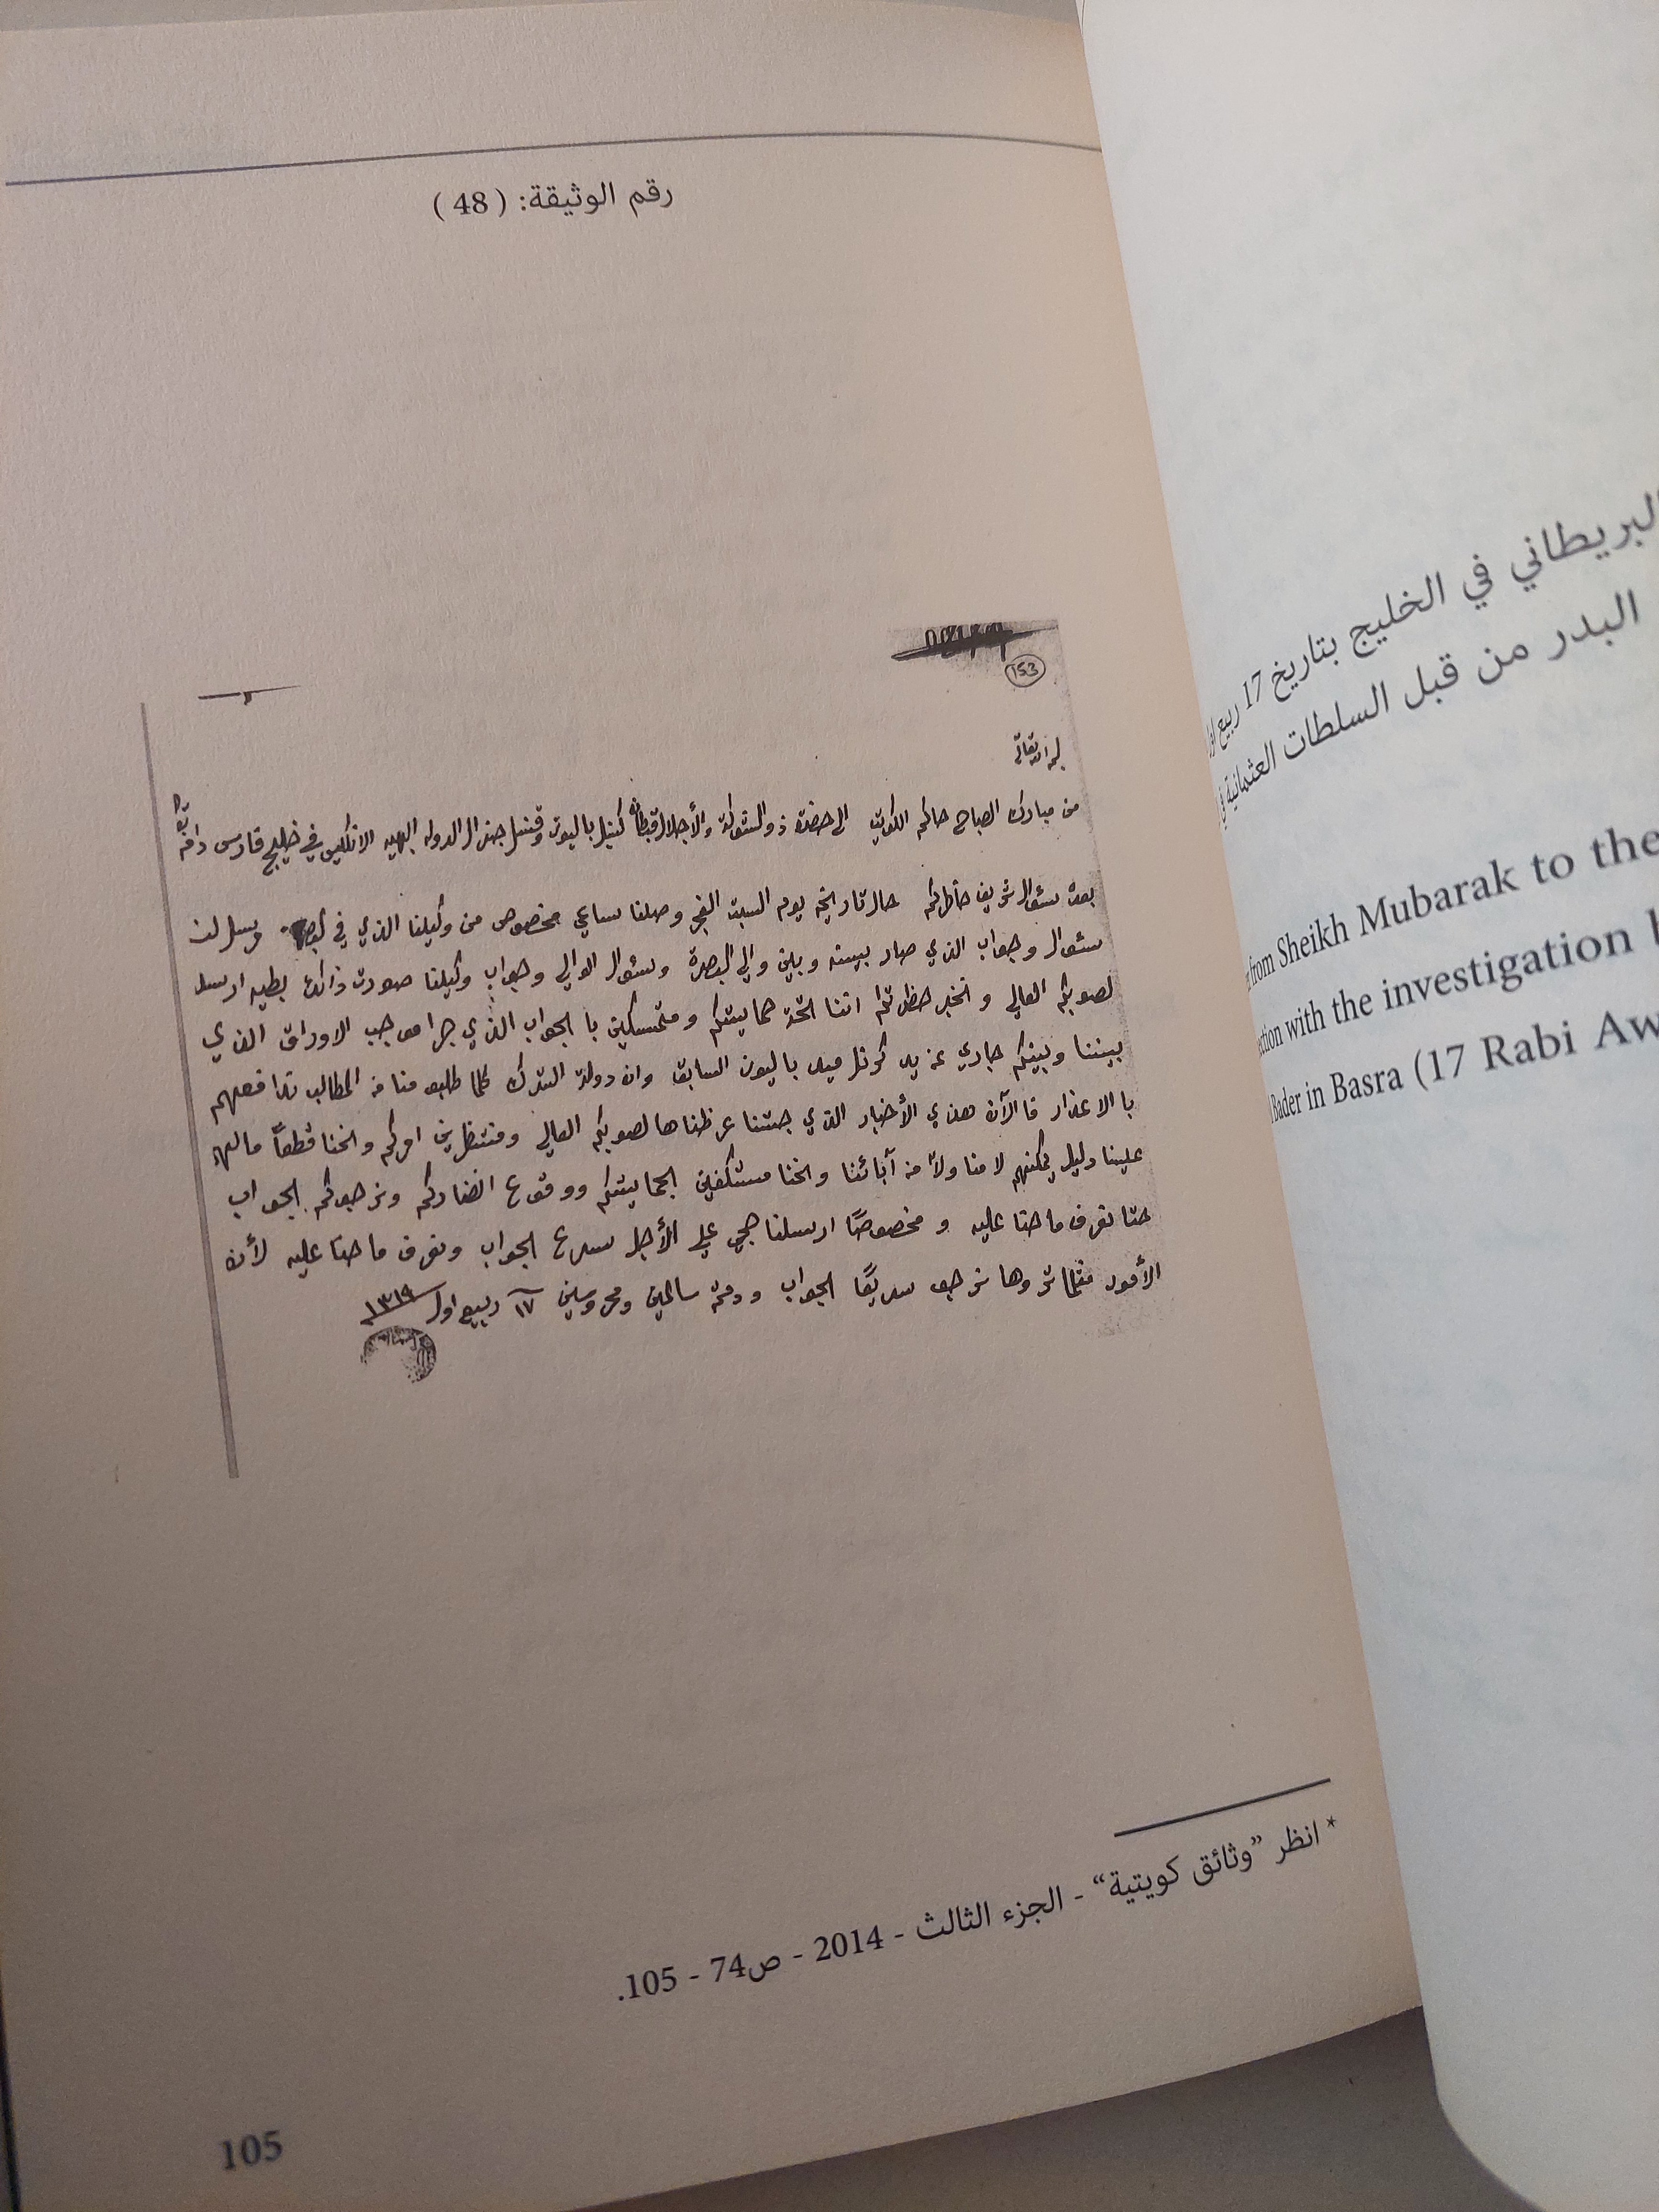 رقم الوثيقة: ( 48 )
153
من مبارك الصباح حاكم الكويت الى حضرة ذو الشوكة والأجلال كنبل باليوز وقنسل جنرال الدوله البهيه الانكليس في خليج فارس
بعده سئوال شريف خاطركم حال تاريخه يوم السبت الفجر وصلنا ساعي مخصوص من وكيلنا الذي في مرسل لنا
سئوال وجواب الذي صار بينه وبين والي البصرة وسئوال الوالي وجواب وكيلنا صورت ذالك بطيه ارسلنا
لصوبكم العالي والخبر حظرتكم اننا تحت حمايتكم ومتمسكين با الجواب الذي جرا موجب الاوراق الذي
بيننا وبينكم جاري عن يد كرنل ميد باليوز السابق وان دولة الترك كلما طلبو منا من المطالب ندافعهم
با الاعذار فا الآن هذي الأخبار الذي جتنا عرظناها لصوبكم العالي ومنتظرين امركم واحنا قطعاً مالهم
علينا دليل يمكنهم لا منا ولا من آبائنا واحنا مستكفين بحمايتكم ووقوع انضاركم ونرجوكم الجواب
حتا نعرف ما حنا عليه و مخصوصًا ارسلنا حجي علي لأجل سرع الجواب ونعرف ما حنا عليه لأن
الأمور مثلما تروها نرجو سريعًا الجواب ودمتم سالمين ومحروسين ١٧ ربيع اول ١٣١٩
* انظر ”وثائق كويتية“ - الجزء الثالث - 2014 - ص74 - 105.
105
البريطاني في الخليج بتاريخ 17 ربيع
البدر من قبل السلطات العثمانية
from Sheikh Mubarak to the
with the investigation
Bader in Basra (17 Rabi Aw